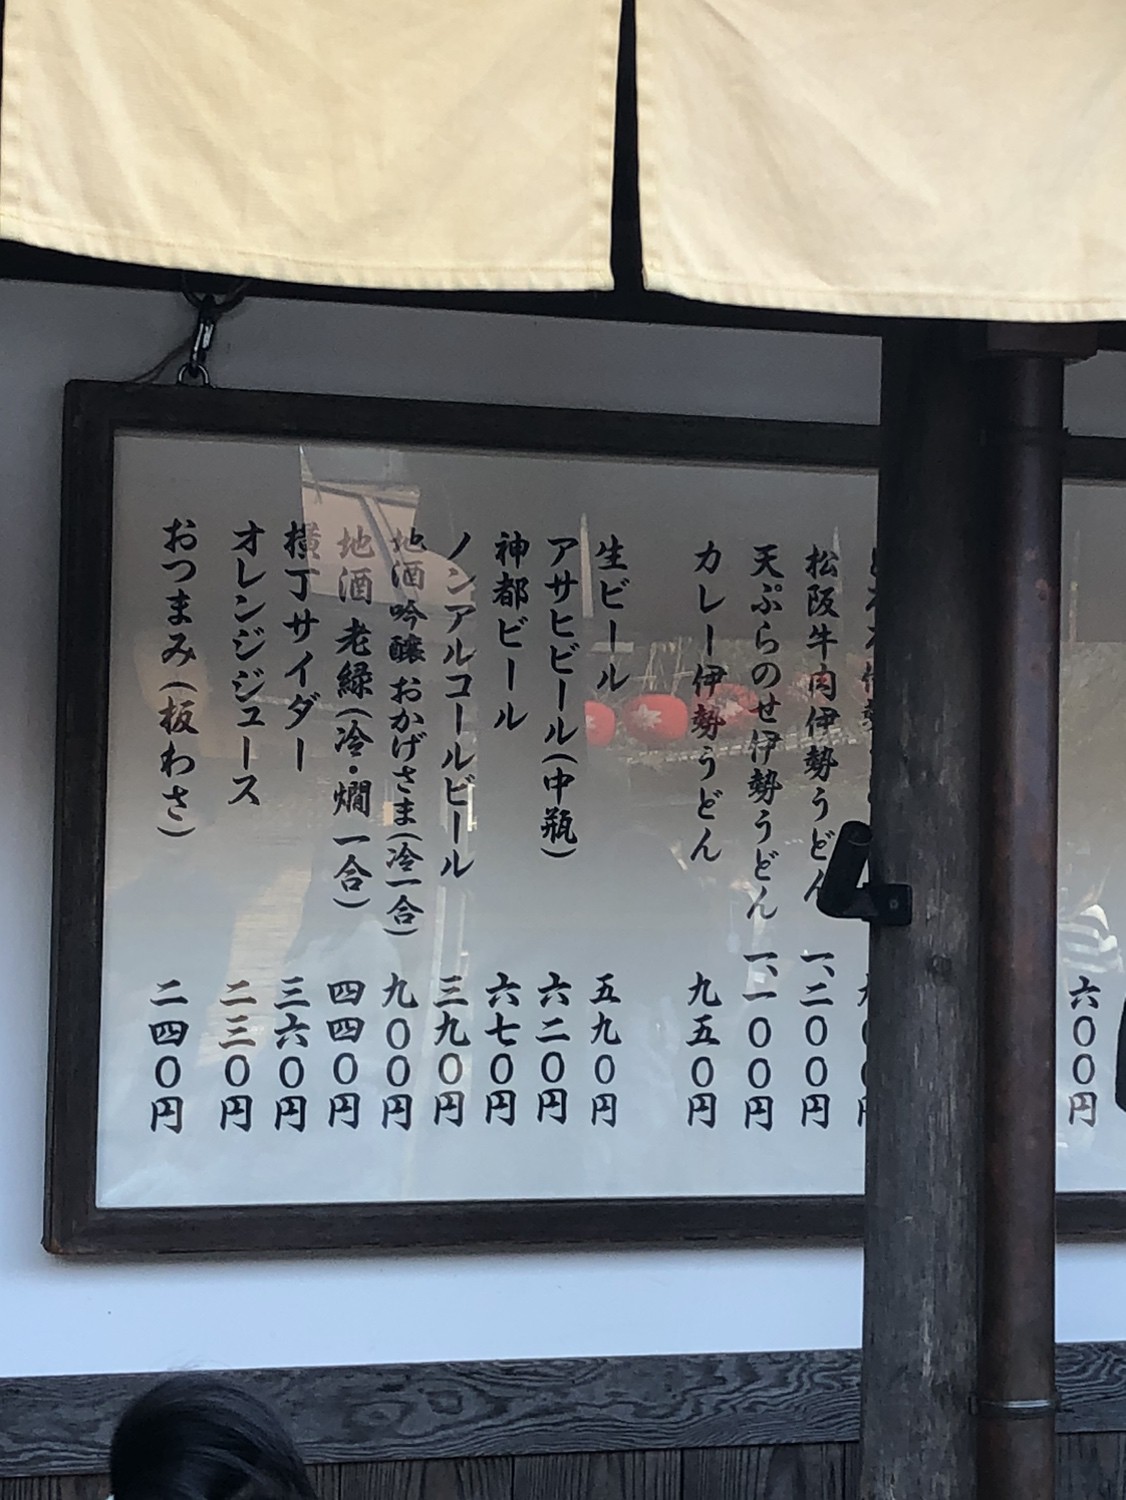 六〇〇円
松阪牛肉伊勢うどん 一、二〇〇円
天ぷらのせ伊勢うどん 一、一〇〇円
カレー伊勢うどん 九五〇円
生ビール 五九〇円
アサヒビール(中瓶) 六二〇円
神都ビール 六七〇円
ノンアルコールビール 三九〇円
地酒 吟醸 おかげさま(冷一合) 九〇〇円
地酒 老緑(冷・燗 一合) 四四〇円
横丁サイダー 三六〇円
オレンジジュース 二三〇円
おつまみ(板わさ) 二四〇円